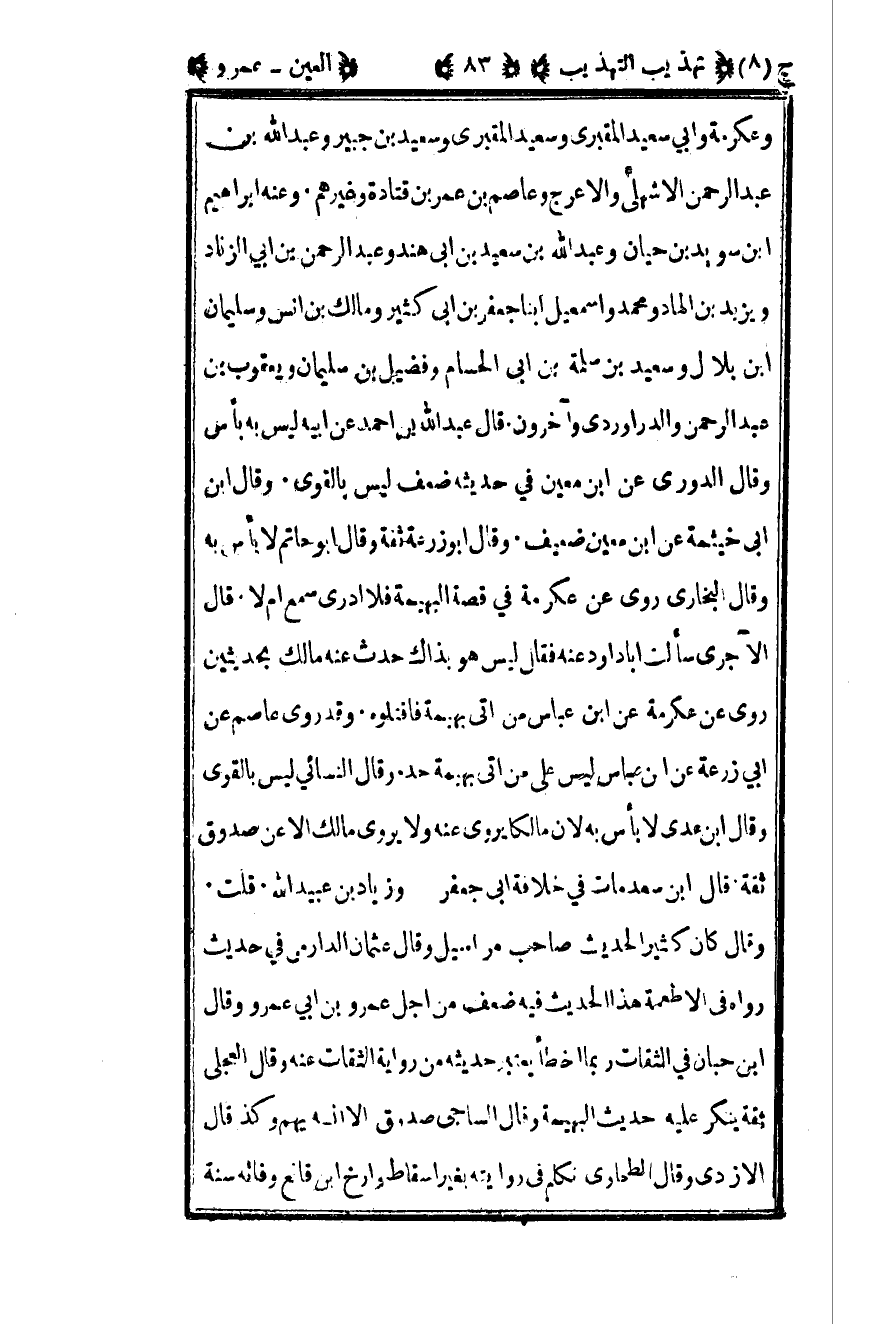 ج (٨) تهذيب التهذيب ٨٣ العين - عمرو
وعكرمة وابي سعيد المقبرى وسعيد المقبرى وسعيد بن جبير وعبدالله بن
عبدالرحمن الاشهلى والاعرج وعاصم بن عمر بن قتادة وغيرهم · وعنه ابراهيم
ابن سويد بن حيان وعبدالله بن سعيد بن ابى هند وعبدالرحمن بن ابي الزناد
ويزيد بن الهاد ومحمد واسمعيل ابنا جعفر بن ابى كثير ومالك بن انس وسليمان
ابن بلال وسعيد بن سلمة بن ابى الحسام وفضيل بن سليمان ويعقوب بن
عبدالرحمن والدراوردى وآخرون · قال عبدالله بن احمد عن ابيه ليس به بأس
وقال الدورى عن ابن معين في حديثه ضعف ليس بالقوى · وقال ابن
ابى خيثمة عن ابن معين ضعيف · وقال ابوزرعة ثقة وقال ابوحاتم لا بأس به
وقال البخارى روى عن عكرمة في قصة البهيمة فلا ادرى سمع ام لا · قال
الآجرى سألت اباداود عنه فقال ليس هو بذاك حدث عنه مالك بحديثين
روى عن عكرمة عن ابن عباس من اتى بهيمة فاقتلوه · وقد روى عاصم عن
ابي زرعة عن ابن عباس ليس على من اتى بهيمة حد · وقال النسائي ليس بالقوى
وقال ابن عدى لا بأس به لان مالكا يروى عنه ولا يروى مالك الا عن صدوق
ثقة · قال ابن سعد مات في خلافة ابى جعفر وزياد بن عبيدالله · قلت ·
وقال كان كثير الحديث صاحب مراسيل وقال عثمان الدارمى في حديث
رواه فى الاطعمة هذا الحديث فيه ضعف من اجل عمرو بن ابي عمرو وقال
ابن حبان في الثقات ربما اخطأ يعتبر حديثه من رواية الثقات عنه وقال العجلى
ثقة ينكر عليه حديث البهيمة وقال الساجى صدوق الا انه يهم وكذ قال
الازدى وقال الطحاوى تكلم فى روايته بغير اسقاط وارخ ابن قانع وفاته سنة